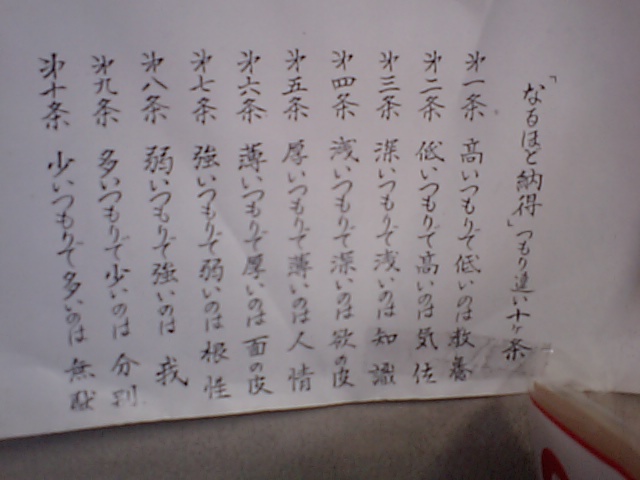 「なるほど納得」つもり違い十ヶ条
第一条 高いつもりで低いのは教養
第二条 低いつもりで高いのは気位
第三条 深いつもりで浅いのは知識
第四条 浅いつもりで深いのは欲の皮
第五条 厚いつもりで薄いのは人情
第六条 薄いつもりで厚いのは面の皮
第七条 強いつもりで弱いのは根性
第八条 弱いつもりで強いのは我
第九条 多いつもりで少いのは分別
第十条 少いつもりで多いのは無駄